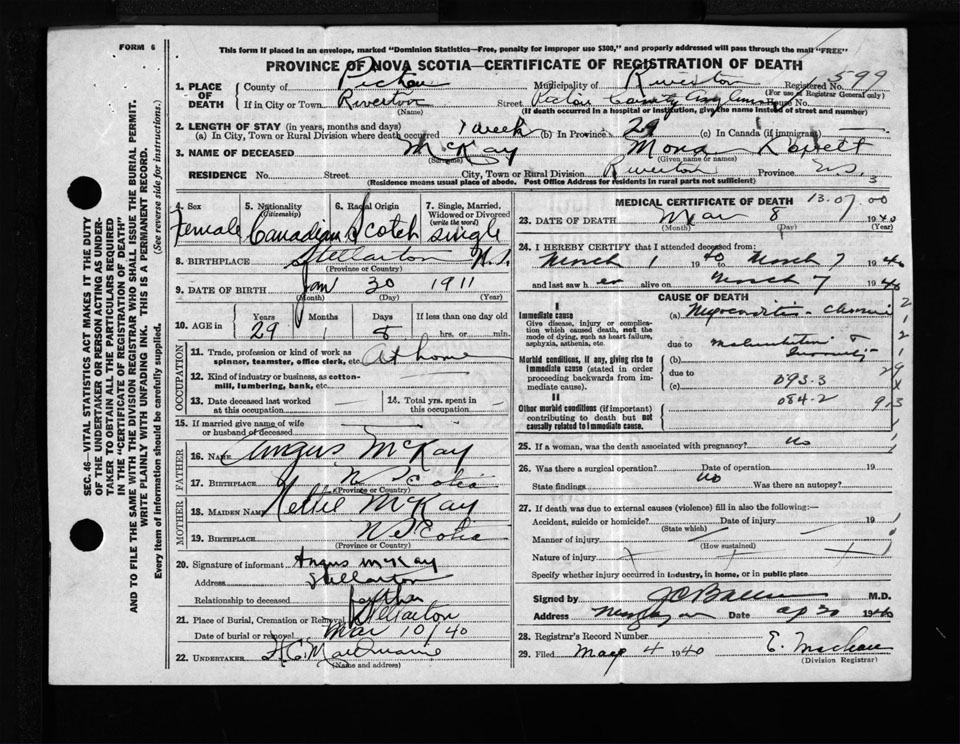 FORM 6
This form if placed in an envelope, marked "Dominion Statistics—Free, penalty for improper use $300," and properly addressed will pass through the mail "FREE"
PROVINCE OF NOVA SCOTIA—CERTIFICATE OF REGISTRATION OF DEATH
1. PLACE OF DEATH
County of Pictou Municipality of Riverton Registered No. 599
(For use of Registrar General only)
If in City or Town Riverton Street Pictou County House No.
(Name) (If death occurred in a hospital or institution, give the name instead of street and number)
2. LENGTH OF STAY (in years, months and days)
(a) In City, Town or Rural Division where death occurred 1 week (b) In Province 29 (c) In Canada (if immigrant) —
3. NAME OF DECEASED McKay Mona
(Surname) (Given name or names)
RESIDENCE No. Street City, Town or Rural Division Riverton Province N.S.
(Residence means usual place of abode. Post Office Address for residents in rural parts not sufficient) 3
4. Sex 5. Nationality (Citizenship) 6. Racial Origin 7. Single, Married, Widowed or Divorced (write the word)
Female Canadian Scotch Single
8. BIRTHPLACE Stellarton N.S.
(Province or Country)
9. DATE OF BIRTH Jan 30 1911
(Month) (Day) (Year)
10. AGE in Years Months Days If less than one day old
29 1 8 hrs. or min.
OCCUPATION
11. Trade, profession or kind of work as spinner, teamster, office clerk, etc. At home
12. Kind of industry or business, as cotton-mill, lumbering, bank, etc. —
13. Date deceased last worked at this occupation — 14. Total yrs. spent in this occupation —
15. If married give name of wife or husband of deceased —
FATHER
16. NAME Angus McKay
17. BIRTHPLACE N Scotia
(Province or Country)
MOTHER
18. MAIDEN NAME Nellie McKay
19. BIRTHPLACE N Scotia
(Province or Country)
20. Signature of informant Angus McKay
Address Stellarton
Relationship to deceased father
21. Place of Burial, Cremation or Removal Stellarton
Date of burial or removal Mar 10/40
22. UNDERTAKER
(Name and address)
MEDICAL CERTIFICATE OF DEATH 13.07.00
23. DATE OF DEATH Mar 8 1940
(Month) (Day) (Year)
24. I HEREBY CERTIFY that I attended deceased from:
March 1 1940 to March 7 1940
and last saw her alive on March 7 1940
CAUSE OF DEATH
I
Immediate cause
Give disease, injury or complication which caused death, not the mode of dying, such as heart failure, asphyxia, asthenia, etc.
(a) Myocarditis - Chronic
due to Malnutrition &
Morbid conditions, if any, giving rise to immediate cause (stated in order proceeding backwards from immediate cause).
(b)
due to
(c) 093-3
II
084-2
Other morbid conditions (if important) contributing to death but not causally related to immediate cause.
25. If a woman, was the death associated with pregnancy? no
26. Was there a surgical operation? no Date of operation 19
State findings Was there an autopsy?
27. If death was due to external causes (violence) fill in also the following:—
Accident, suicide or homicide? Date of injury 19
(State which)
Manner of injury
(How sustained)
Nature of injury
Specify whether injury occurred in industry, in home, or in public place
Signed by M.D.
Address Date Ap 30 1940
28. Registrar's Record Number
29. Filed May 4 1940
(Division Registrar)
SEC. 46—VITAL STATISTICS ACT MAKES IT THE DUTY OF THE UNDERTAKER OR PERSON ACTING AS UNDERTAKER TO OBTAIN ALL THE PARTICULARS REQUIRED IN THE "CERTIFICATE OF REGISTRATION OF DEATH" AND TO FILE THE SAME WITH THE DIVISION REGISTRAR WHO SHALL ISSUE THE BURIAL PERMIT.
WRITE PLAINLY WITH UNFADING INK. THIS IS A PERMANENT RECORD.
Every item of information should be carefully supplied. (See reverse side for instructions.)